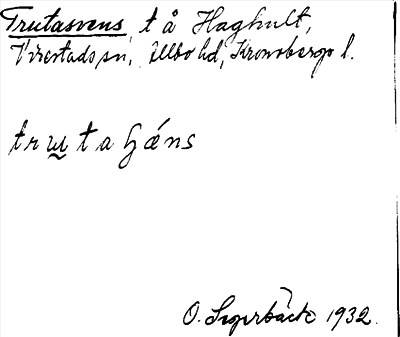 Trutasvens, t å Haghult,
Virestads sn, Allbo hd, Kronobergs l.
trutahǽns
O. Sigerbäck 1932.